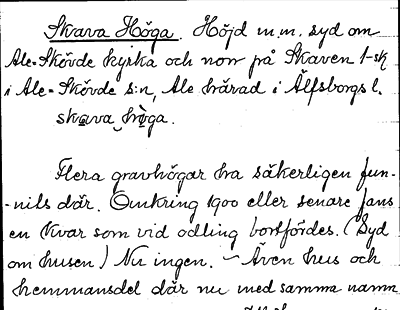 Skava Höga. Höjd m.m. syd om
Ale-Skövde kyrka och norr på Skaven 1-sk
i Ale-Skövde s:n, Ale härad i Älfsborgs l.
skava höga.
Flera gravhögar ha säkerligen fun-
-nits där. Omkring 1900 eller senare fans
en kvar som vid odling bortfördes. (Syd
om husen) Nu ingen. – Även hus och
hemmansdel där nu med samma namn